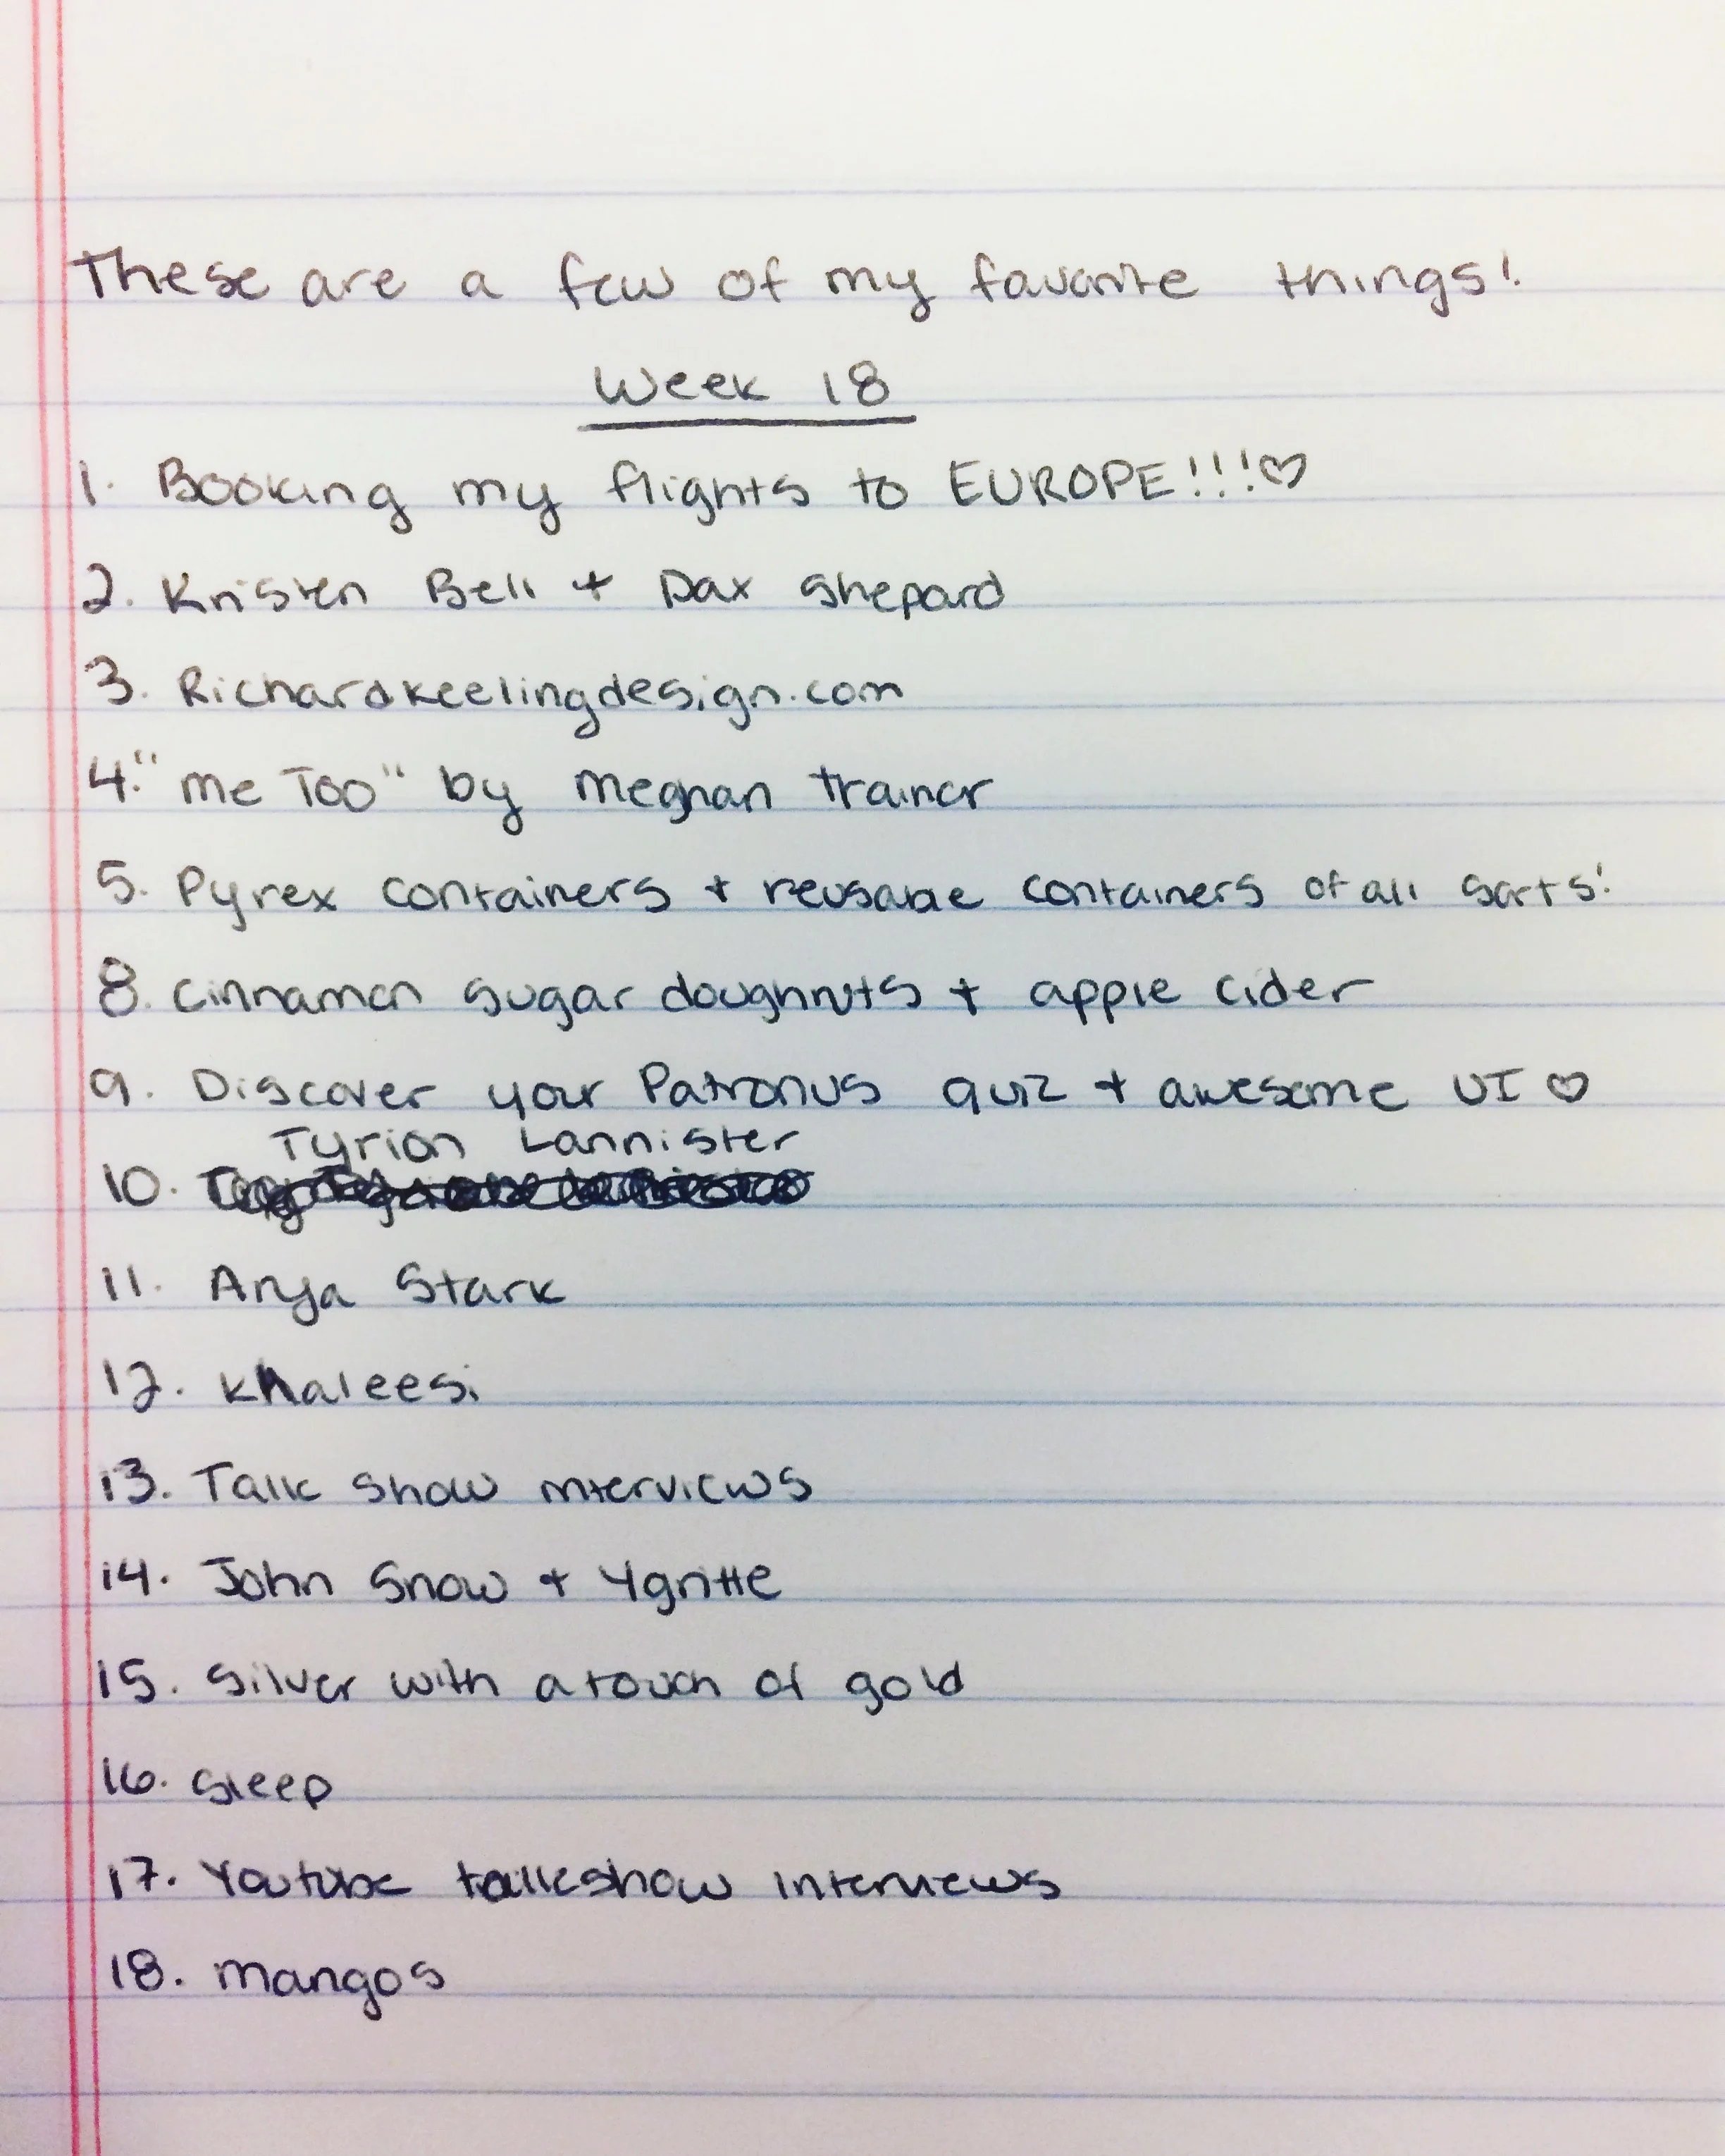 These are a few of my favorite things!
Week 18
1. Booking my flights to EUROPE!!!♡
2. Kristen Bell + Dax Shepard
3. Richardkeelingdesign.com
4. "Me Too" by Meghan Trainor
5. Pyrex containers + reusable containers of all sorts!
8. Cinnamon sugar doughnuts + apple cider
9. Discover your Patronus quiz + awesome UI ♡
Tyrion Lannister
10.
11. Arya Stark
12. Khaleesi
13. Talk show interviews
14. John Snow + Ygritte
15. Silver with a touch of gold
16. Sleep
17. Youtube talkshow interviews
18. mangos